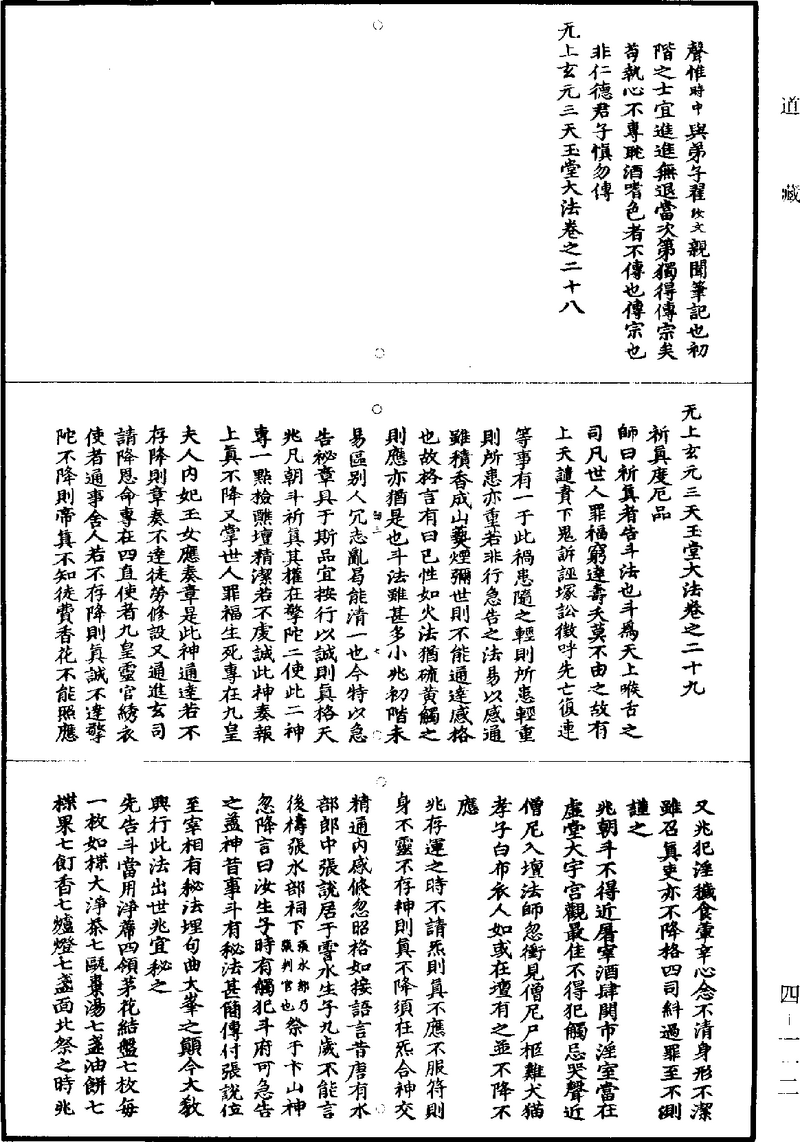 道藏
聲惟時中與弟子翟汝文親聞筆記也初
階之士宜進進無退當次第獨得傳宗矣
苟執心不專耽酒嗜色者不傳也傳宗也
非仁德君子慎勿傳
无上玄元三天玉堂大法卷之二十八
无上玄元三天玉堂大法卷之二十九
祈真度厄品
師曰祈真者告斗法也斗為天上喉舌之
司凡世人罪福窮達壽夭莫不由之故有
上天譴責下鬼訴誣塚訟徵呼先亡復連
等事有一于此禍患隨之輕則所患輕重
則所患亦重若非行急告之法易以感通
雖積香成山爇煙彌世則不能通達感格
也故格言有曰己性如火法猶硫黃觸之
則應亦猶是也斗法雖甚多小兆初階未
易區別人冗志亂曷能清一也今特以急
告祕章具于斯品宜按行以誠則真格天
兆凡朝斗祈真其權在擎陀二使此二神
專一點檢醮壇精潔若不虔誠此神奏報
上真不降又掌世人罪福生死專在九皇
夫人內妃玉女應奏章是此神通達若不
存降則章奏不達徒勞修設又通進玄司
請降恩命專在四直使者九皇靈官綉衣
使者通事舍人若不存降則真誠不達擎
陀不降則帝真不知徒費香花不能照應
又兆犯淫穢食葷辛心念不清身形不潔
雖召真吏亦不降格四司糾過罪至不測
謹之
兆朝斗不得近屠宰酒肆闤市淫室當在
虛堂大宇宮觀最佳不得犯觸忌哭聲近
僧尼入壇法師忽衝見僧尼尸柩雞犬猫
孝子白布衣人如或在壇有之並不降不
應
兆存運之時不請炁則真不應不服符則
身不靈不存神則真不降須在炁合神交
精通內感倏忽昭格如接語言昔唐有水
部郎中張說居于霅水生子九歲不能言
後禱張水部祠下張水部乃張判官也祭于卞山神
忽降言曰汝生子時有觸犯斗府可急告
之蓋神昔事斗有秘法甚簡傳付張說位
至宰相有秘法埋句曲大峯之顛今大教
興行此法出世兆宜秘之
先告斗當用淨蓆四領茅花結盤七枚每
一枚如楪大淨茶七甌棗湯七盞油餅七
楪果七飣香七爐燈七盞面北祭之時兆
四一一二